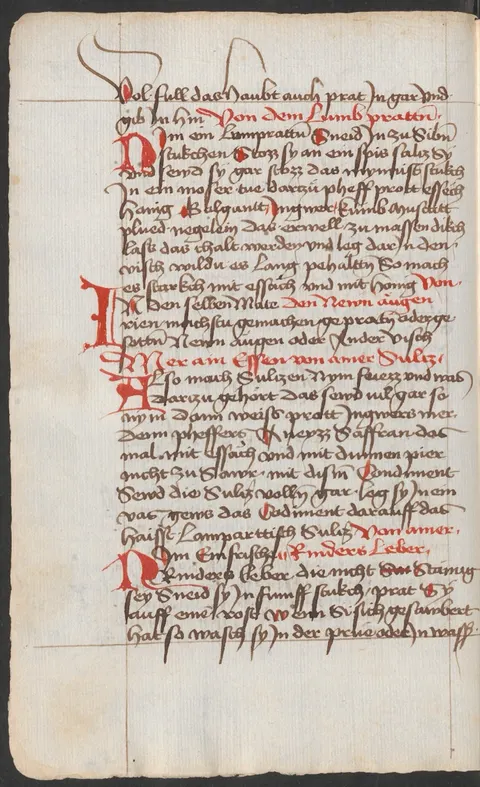 Vol full das Haubt auch prat In gar vnd
gib In hin Von dem Lumb prattn
Nim ein Lumprattn Sneid In zu Sibn
Stukchen Stozz sy an ein spis Saltz Sy
vnd send sy gar Stozz das mynnist stukch
In ein moser tue dartzu pheff prott essech
Honig Galgantt Ingwer kumb Muscatt
plued negelein das erwell zu massen dikch
lass das chalt werden vnd leg dar In den
visch wildu es Lang pehaltn So mach
es starkch mit essich vnd mit honig Von
In den selben Mate den Newn augen
rien machstu gemachen gepratn oder ge
sottn Newn augen oder Ander visch
Mer ain Essen von ainer Sultz
Also mach Sultzen Nym fuezz vnd was
dartzu gehort das sewd vil gar so
nym dann weiss prott Ingwers mer
denn pheffers kneyzz Saffran das
mal mit essich vnd mit dunnen pier
nicht zu Sawr mit dism Condiment
Sewd die Sultz volln gar leg sy In ein
vas geus das Codiment darauff das
haisst Lamparttisch Sultz Von ainer
Nim Ein frische Rinders Leber
Rinders leber die nicht Stainig
sey Sneid sy In funff stukch prat Sy
auff eine Rost Wenn Si sich gesawbert
hat so wasch sy In der prue oder In wass